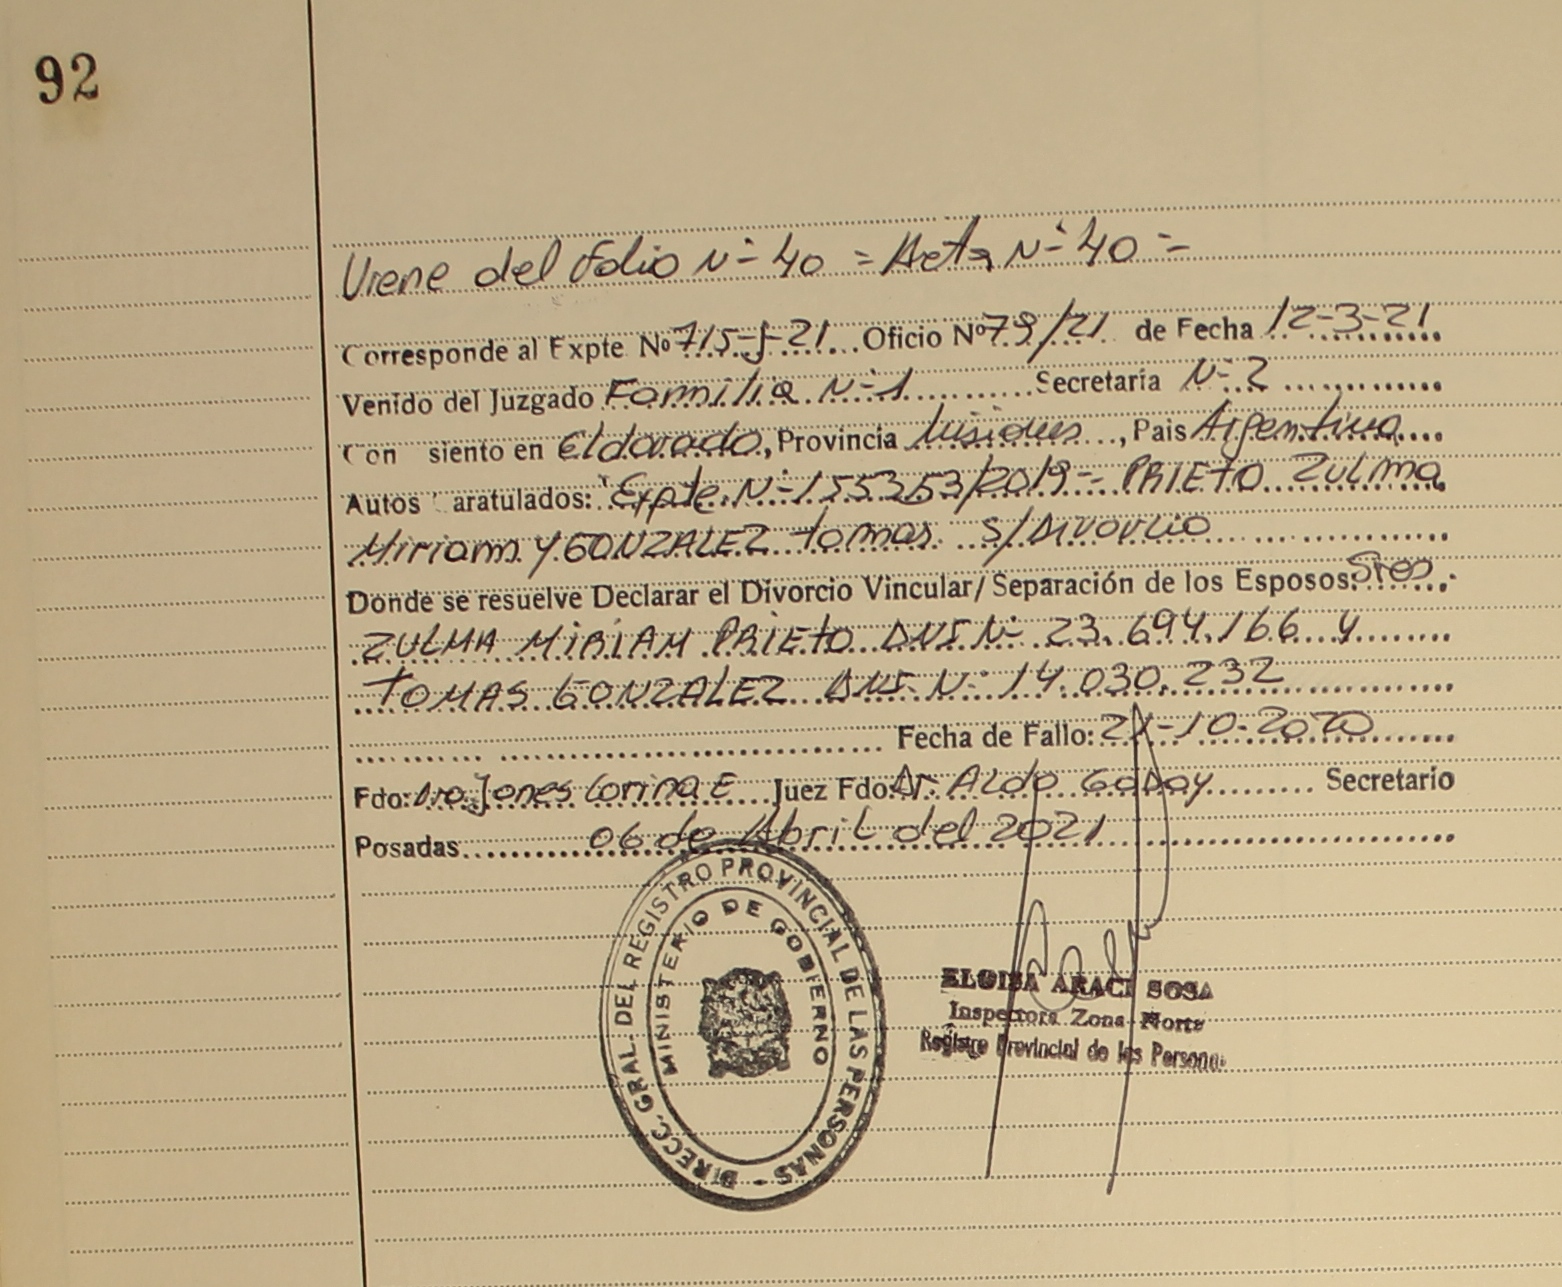 92
Viene del folio Nº 40 = Acta Nº 40 =
Corresponde al Expte Nº 715-J-21 Oficio Nº 79/21 de Fecha 12-3-21
Venido del Juzgado Familia Nº 1 Secretaría Nº 2
Con siento en Eldorado, Provincia Misiones, Pais Argentina
Autos aratulados: Expte. Nº 155353/2019 - PRIETO ZULMA
Miriam Y GONZALEZ tomas S/Divorcio
Donde se resuelve Declarar el Divorcio Vincular/ Separación de los Esposos: Sres.
ZULMA MIRIAM PRIETO DNI Nº 23.694.166 y
TOMAS GONZALEZ DNI Nº 14.030.232
Fecha de Fallo: 21-10-2020
Fdo: Dra. Jones Corina E Juez Fdo: Dr. Aldo Godoy Secretario
Posadas 06 de Abril del 2021
DIRECC. GRAL. DEL REGISTRO PROVINCIAL DE LAS PERSONAS -
MINISTERIO DE GOBIERNO
ELOISA ARACI SOSA
Inspectora Zona Norte
Registro Provincial de las Personas